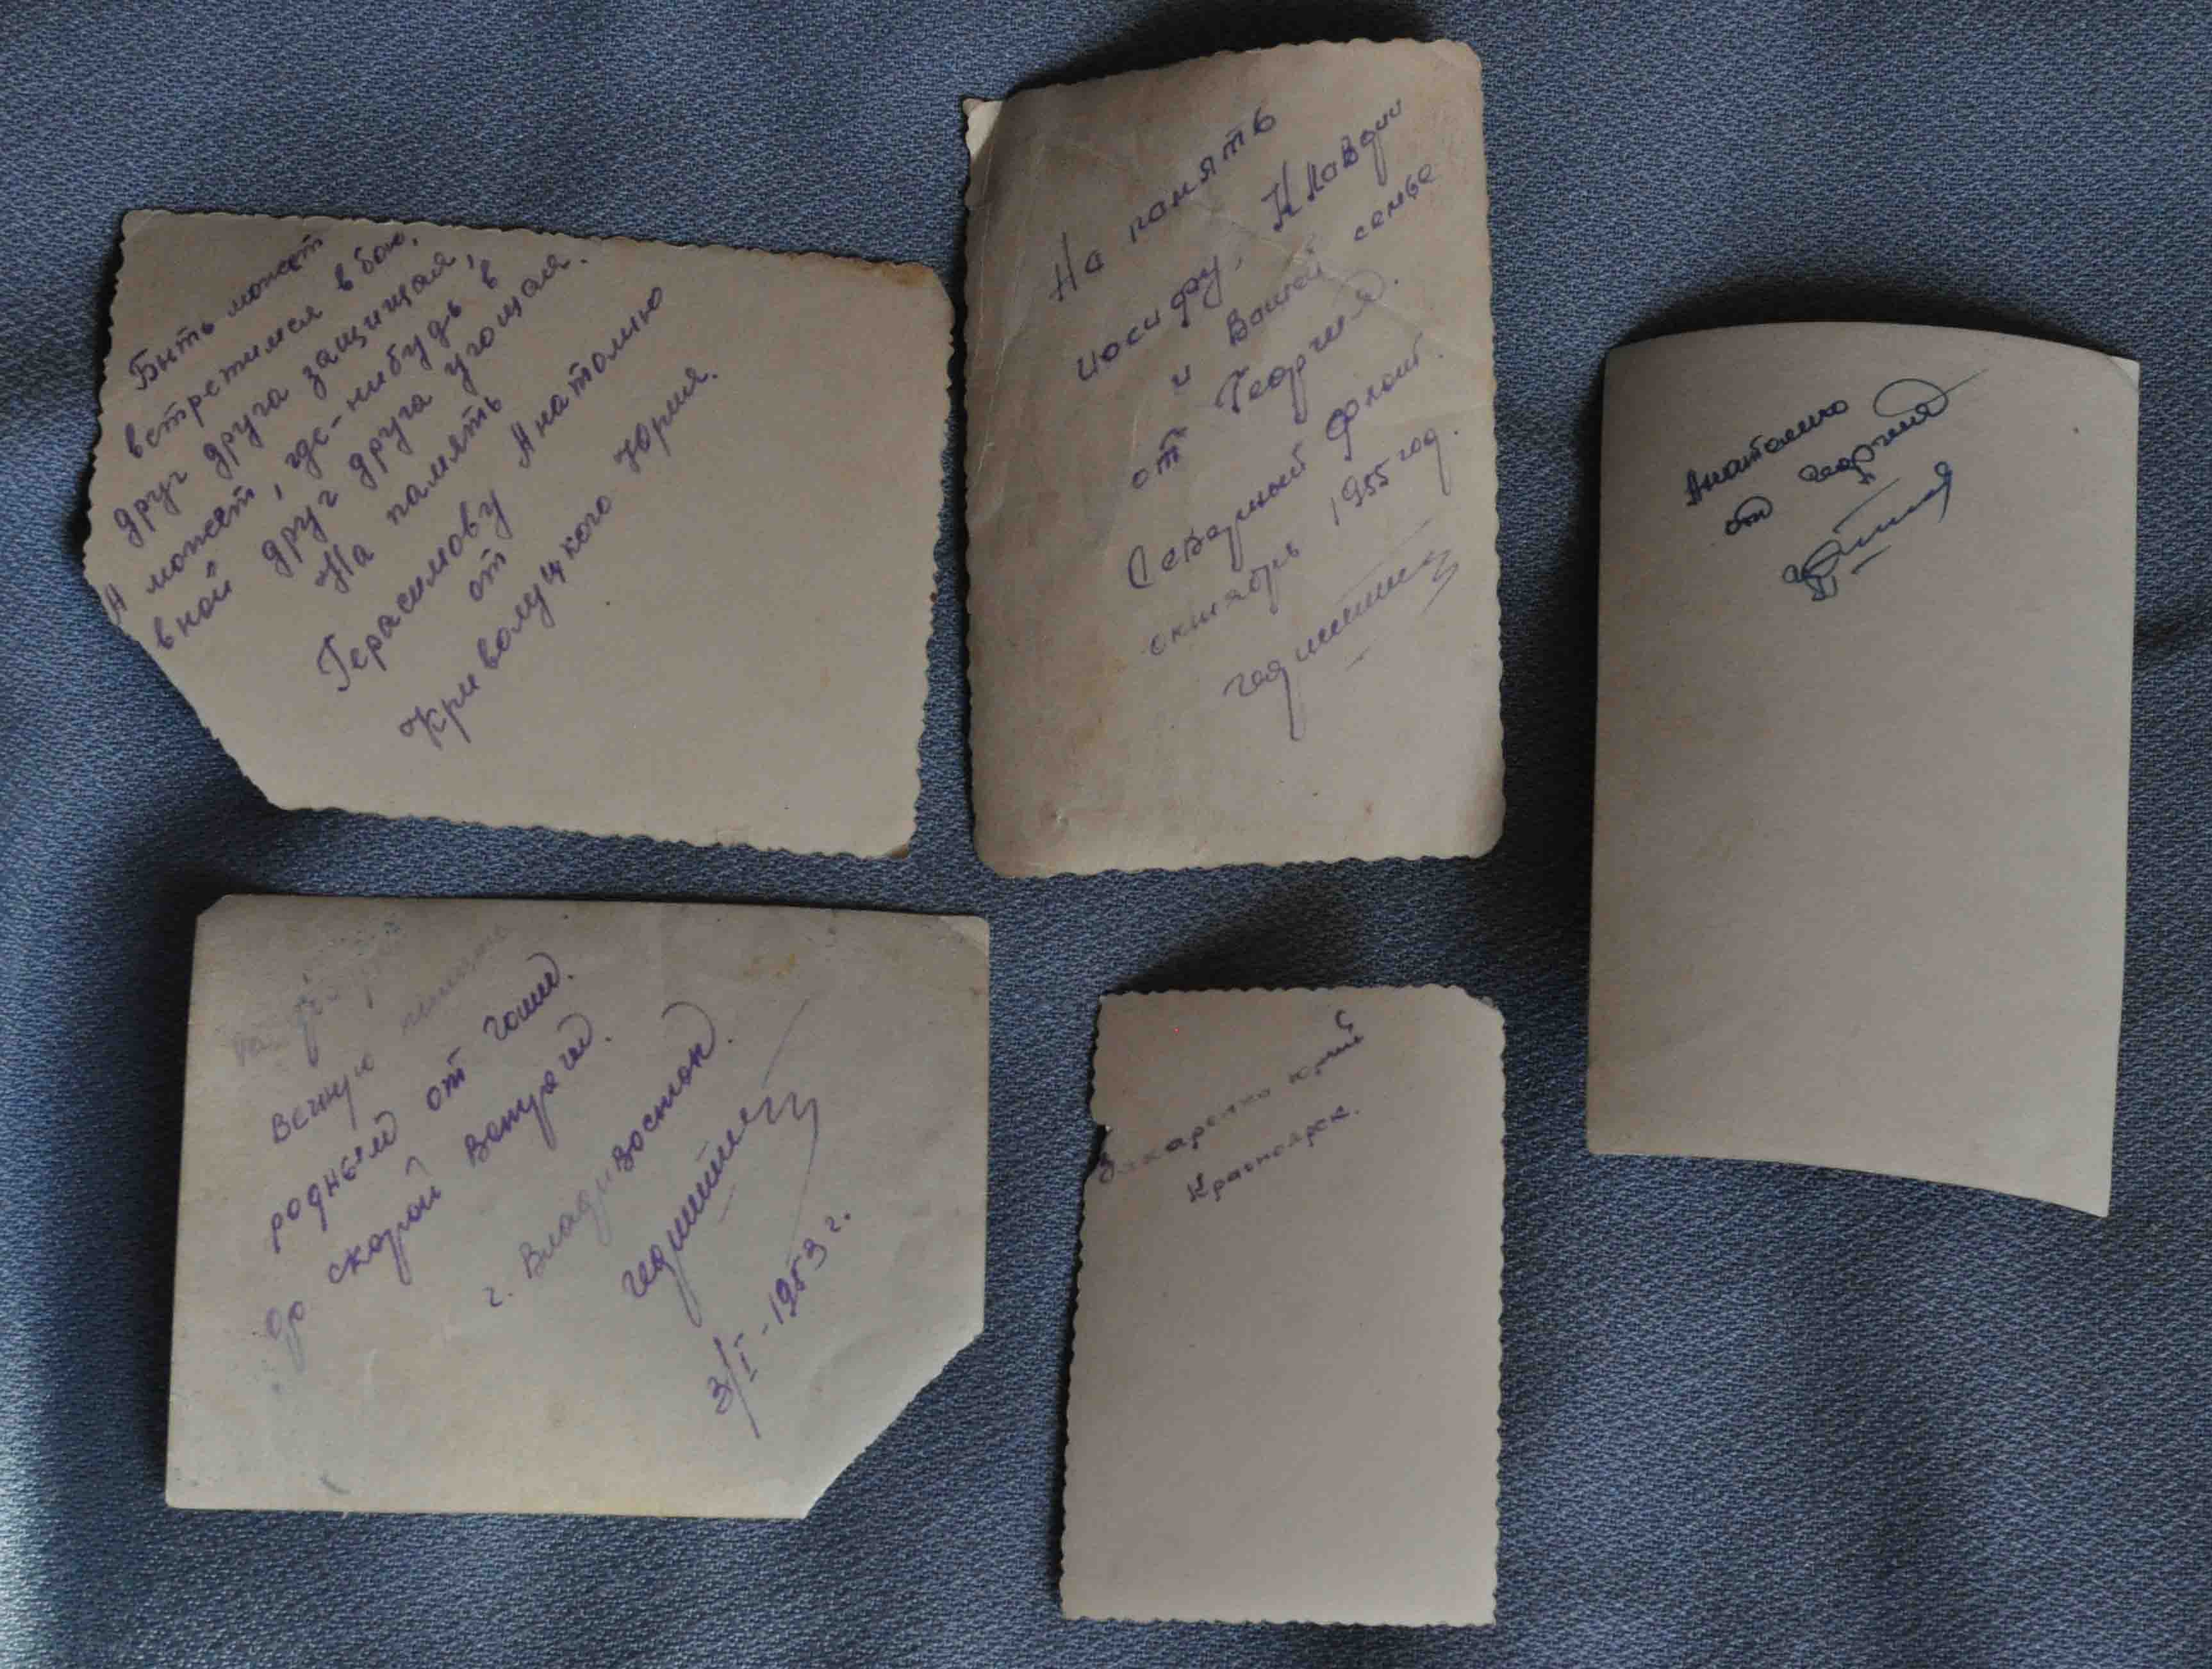 Быть может
встретимся в бою,
друг друга защищая,
А может, где-нибудь в
вной друг друга угощая.
На память
Герасимову Анатолию
от
Криволуцкого Юрия.
На память
Иосифу, Клавдии
и Вашей семье
от Георгия.
Северный флот.
октябрь 1955 год.
Анатолию
от Георгия
вечную
родным от Гоши.
до скорой встречи.
г. Владивосток.
3/I-1953 г.
Захаренко Юрий
Красноярск.